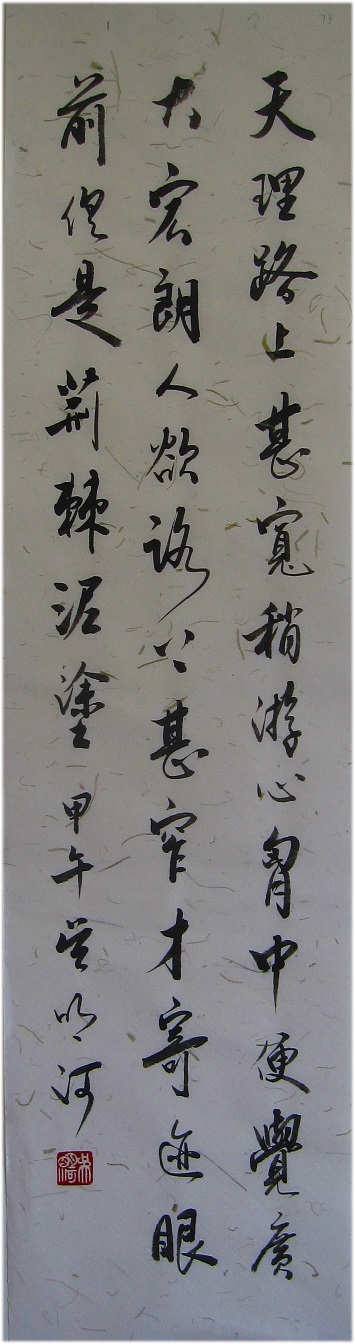 73
天理路上甚寬稍游心胷中便覺廣
大宏朗人欲路上甚窄才寄迹眼
前俱是荆棘泥塗甲午吴明河